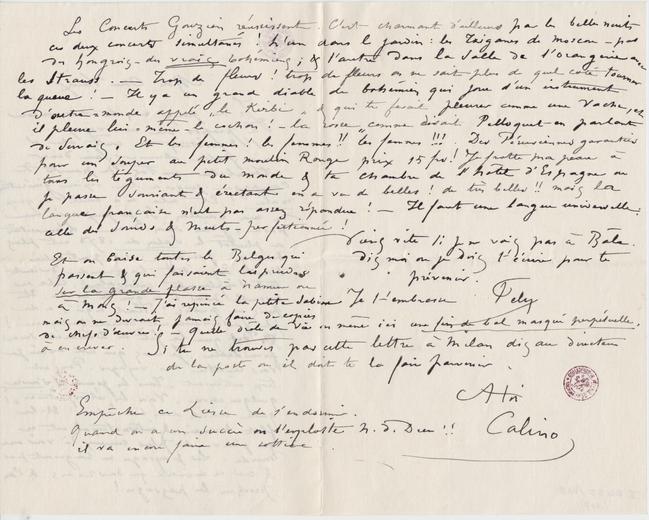 Les Concerts Gouzien réussissent. C'est charmant d'ailleurs par les belles nuits
ces deux concerts simultanés ! l'un dans l'jardin : les Tziganes de Moscou – pas
des hongrois – des vrais bohémiens ; & l'autre dans la salle de l'orangerie avec
les Strauss. – Trop de fleurs ! trop de fleurs on ne sait plus de quel côté tourner
la queue ! – Il y a un grand diable de bohémien qui joue d'un instrument
d'outre-monde appelé "le " & qui te ferait pleurer comme une vache, et
il pleure lui-même le cochon ! – la comme disait Pelloquet en parlant
de . Et les femmes ! les femmes !! les femmes !!! Des Péruviennes garanties
pour un souper au petit moulin Rouge prix 15 fr ! Je frotte ma peau à
tous les téguments du monde & ta chambre de l'hôtel d'Espagne où
je passe souriant & éreinté en a vu de belles ! de très belles !! mais la
langue française n'est pas assez répandue ! – Il faut une langue universelle
celle des Sourds & Muets – perfectionnée !
Viens vite si je ne vais pas à Bâle.
Et on baise toutes les Belges qui
Dis moi où je dois t'écrire pour te
passent & qui faisaient les prudes
" " prévenir.
sur la grande place à Namur ou
à Mons ! – J'ai la petite Sabine Je t'embrasse Fély
mais on ne devrait jamais faire de copies
de chefs d'œuvre ! – quelle drôle de vie on mène ici une fin de bal masqué perpétuelle.
à en crever. Si tu ne trouves pas cette lettre à Milan dis au directeur
de la poste où il doit te la faire parvenir.
A toi
Calino
Empêche ce Liesse de s'endormir.
Quand on a un succès on l'exploite N. d. Dieu !!
il va encore faire une